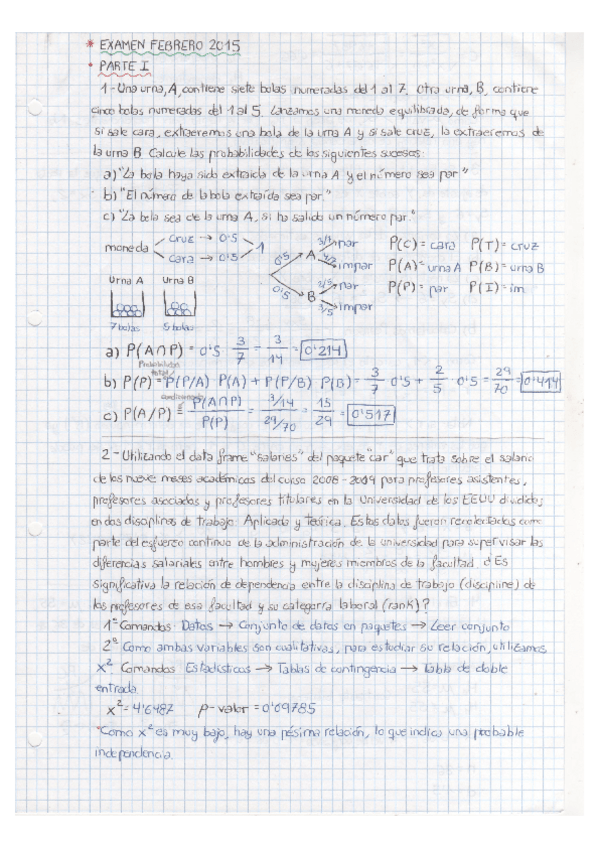 * EXAMEN FEBRERO 2015
• PARTE I
1- Una urna, A, contiene siete bolas numeradas del 1 al 7. Otra urna, B, contiene
cinco bolas numeradas del 1 al 5. Lanzamos una moneda equilibrada, de forma que
si sale cara, extraeremos una bola de la urna A y si sale cruz, la extraeremos de
la urna B. Calcule las probabilidades de los siguientes sucesos:
a) "La bola haya sido extraída de la urna A y el número sea par"
b) "El número de la bola extraída sea par."
c) "La bola sea de la urna A, si ha salido un número par."
moneda cruz → 0'5 cara → 0'5 1
0'5 A 3/7 par 4/7 impar
0'5 B 2/5 par 3/5 impar
P(C) = cara P(T) = cruz
P(A) = urna A P(B) = urna B
P(P) = par P(I) = im
Urna A Urna B
7 bolas 5 bolas
a) P(A∩P) = 0'5 · 3/7 = 3/14 = 0'214
Probabilidad total
b) P(P) = P(P/A) · P(A) + P(P/B) · P(B) = 3/7 · 0'5 + 2/5 · 0'5 = 29/70 = 0'414
condicionada
c) P(A/P) = P(A∩P)/P(P) = 3/14 / 29/70 = 15/29 = 0'517
2- Utilizando el data frame "salaries" del paquete "car" que trata sobre el salario
de los nueve meses académicos del curso 2008-2009 para profesores asistentes,
profesores asociados y profesores titulares en la Universidad de los EEUU divididos
en dos disciplinas de trabajo: Aplicada y Teórica. Estos datos fueron recolectados como
parte del esfuerzo continuo de la administración de la universidad para supervisar las
diferencias salariales entre hombres y mujeres miembros de la facultad. ¿Es
significativa la relación de dependencia entre la disciplina de trabajo (discipline) de
los profesores de esa facultad y su categoría laboral (rank)?
1º Comandos: Datos → Conjunto de datos en paquetes → Leer conjunto
2º Como ambas variables son cualitativas, para estudiar su relación, utilizamos
x². Comandos: Estadísticos → Tablas de contingencia → tabla de doble
entrada
x² = 4'6487 p-valor = 0'09785
*Como x² es muy bajo, hay una pésima relación, lo que indica una probable
independencia.